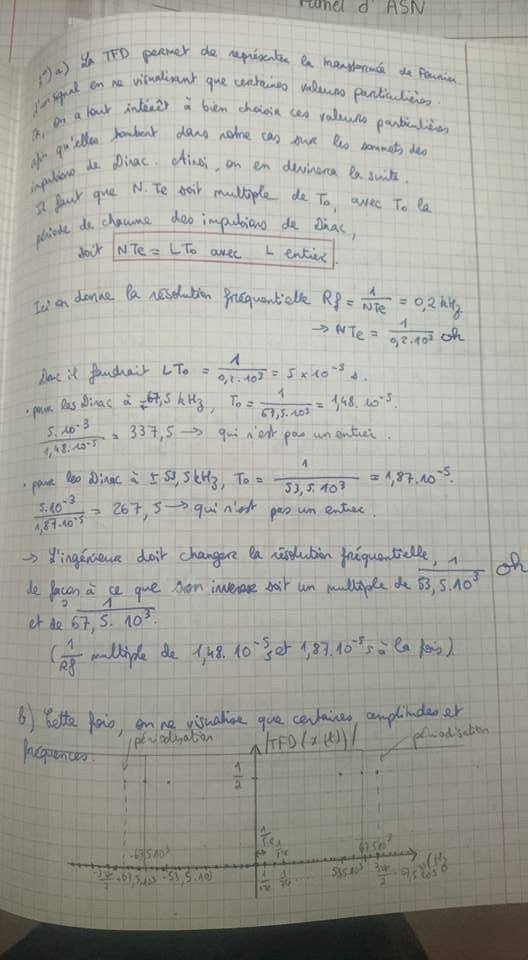 d'ASN
1°) a) La TFD permet de représenter la transformée de Fourier
d'un signal en ne visualisant que certaines valeurs particulières.
on a tout intérêt à bien choisir ces valeurs particulières
afin qu'elles tombent dans notre cas sur les sommets des
impulsions de Dirac. Ainsi, on en devinera la suite.
Il faut que N.Te soit multiple de To, avec To la
période de chacune des impulsions de Dirac,
soit NTe = LTo avec L entier.
Ici on donne la résolution fréquentielle Rf = 1/NTe = 0,2 kHz
→ NTe = 1/0,2.10³ oh
Donc il faudrait LTo = 1/0,2.10³ = 5 × 10⁻³ s.
• pour les Dirac à ±67,5 kHz, To = 1/67,5.10³ = 1,48.10⁻⁵.
5.10⁻³/1,48.10⁻⁵ = 337,5 → qui n'est pas un entier.
• pour les Dirac à ± 53,5 kHz, To = 1/53,5.10³ = 1,87.10⁻⁵.
5.10⁻³/1,87.10⁻⁵ = 267,5 → qui n'est pas un entier.
→ L'ingénieur doit changer la résolution fréquentielle,
de façon à ce que son inverse soit un multiple de 1/53,5.10³ oh
et de 1/67,5.10³.
(1/Rf multiple de 1,48.10⁻⁵s et 1,87.10⁻⁵s à la fois)
b) Cette fois, on ne visualise que certaines amplitudes et
fréquences.
périodisation
|TFD(x(t))|
périodisation
1/2
-67,5.10³
67,5.10³
-53,5.10³
53,5.10³